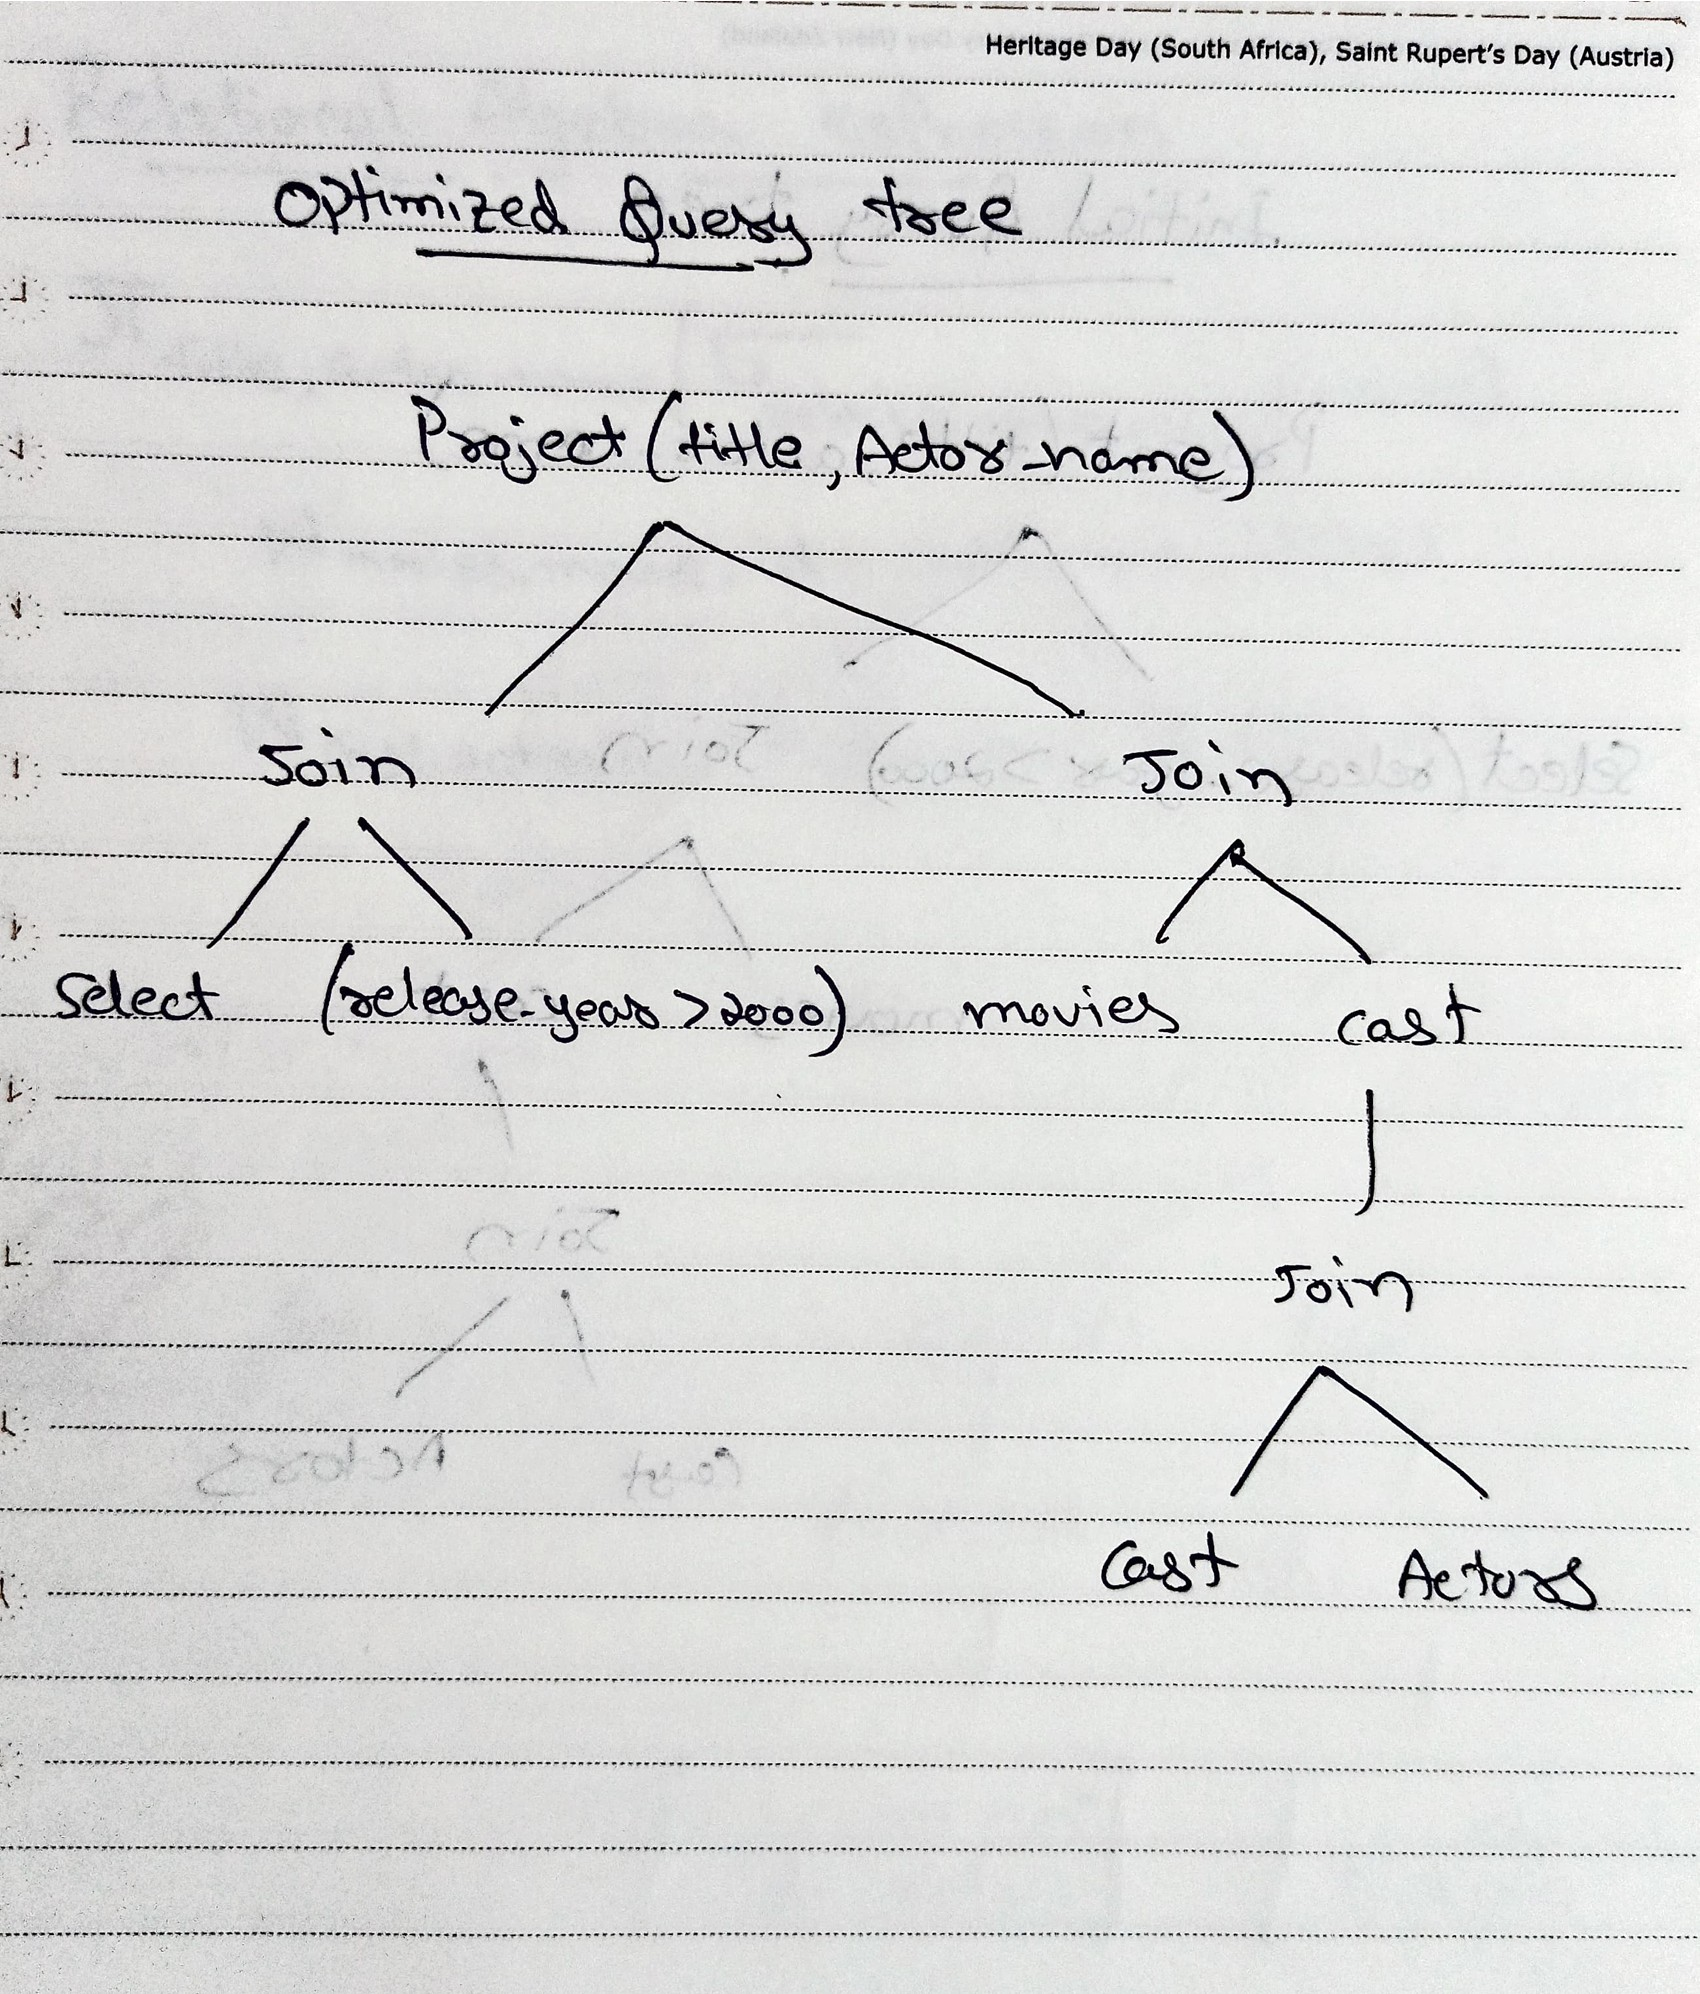 Heritage Day (South Africa), Saint Rupert's Day (Austria)
Optimized Query tree
Project (title, Actor_name)
Join Join
Select (release_year > 2000) movies cast
Join
Cast Actors